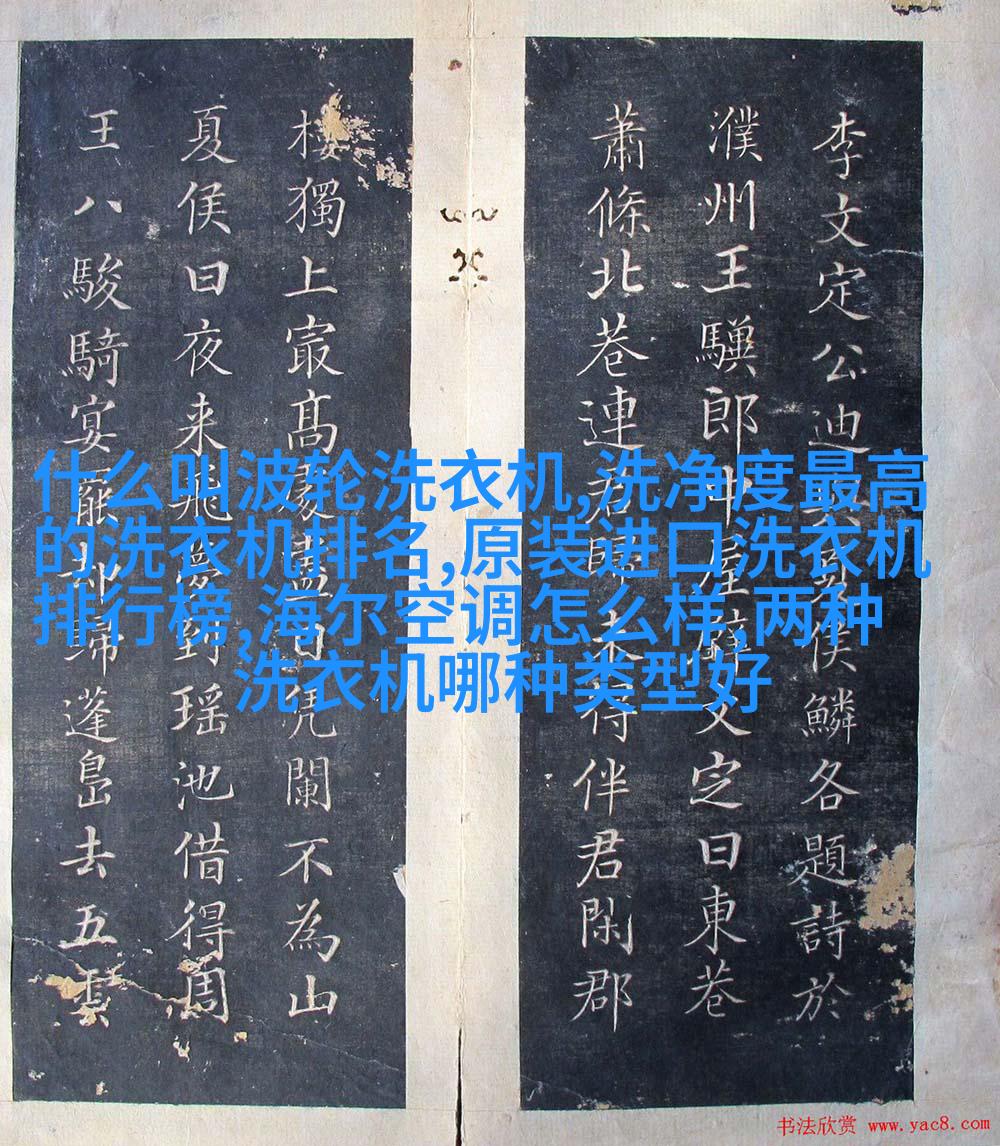 什么叫波轮洗衣机,洗净度最高
的洗衣机排名,原装进口洗衣机
排行榜,海尔空调怎么样,两种
洗衣机哪种类型好
李文定公迪侯鱗各題詩於
濮州王郎中屋文定曰東巷
蕭條北巷連君歸未得伴君閑郡
樓獨上㝡髙處盡日凭闌不為山
夏侯曰夜来飛夢到瑶池借得周
王八駿騎宴罷却歸蓬島去五雲
书法欣赏 www.yac8.com